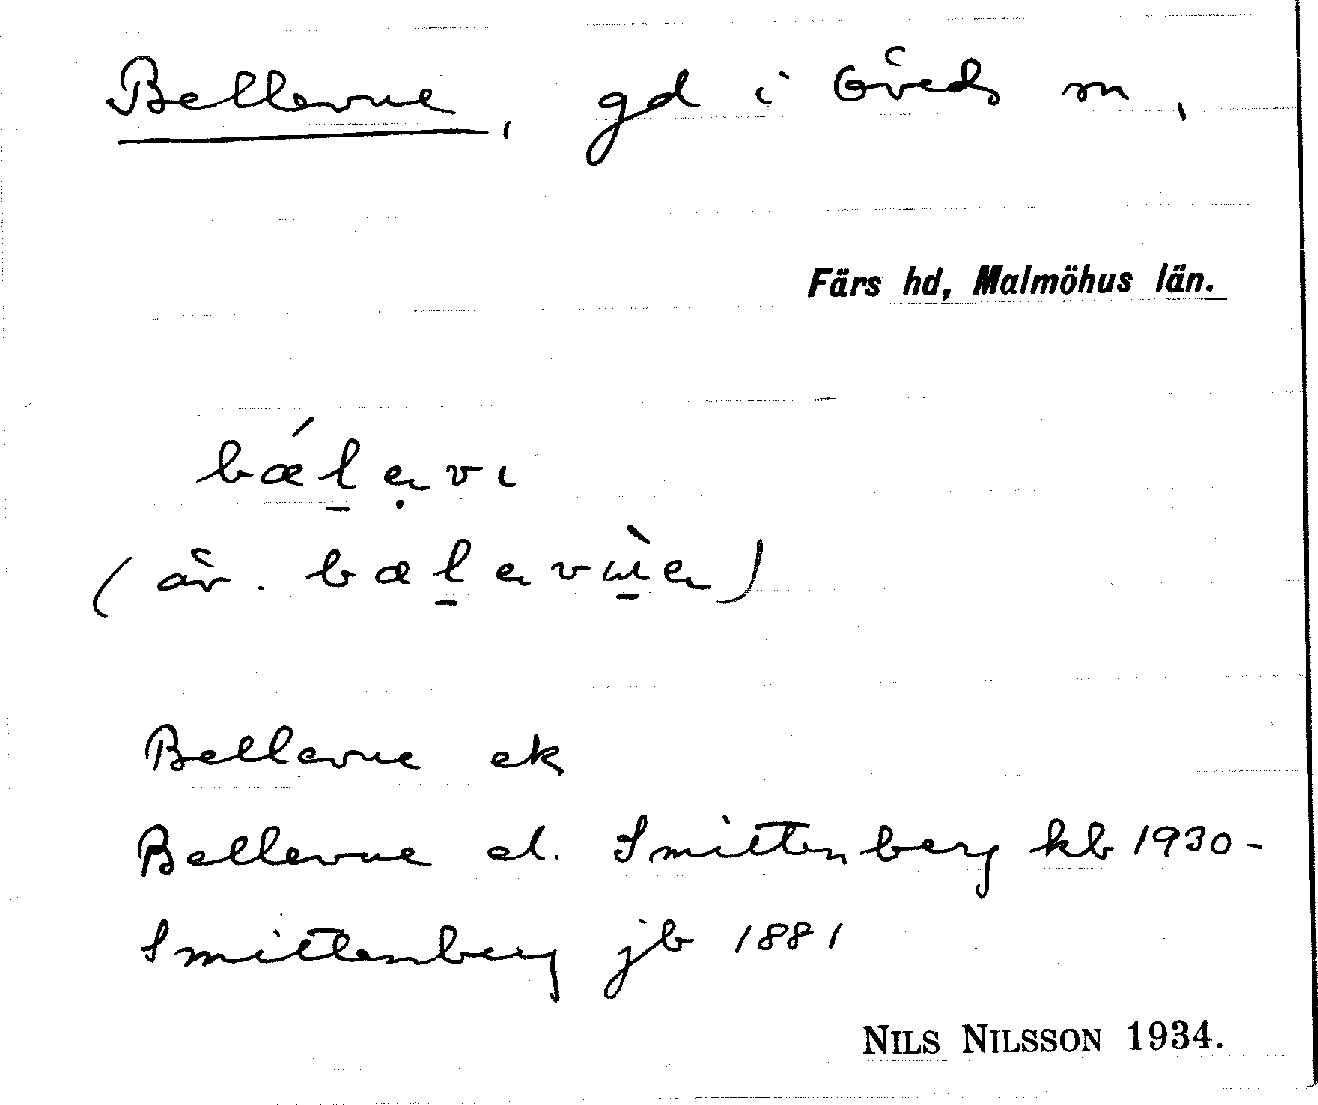 Bellevue, gd i Öveds sn,
Färs hd, Malmöhus län.
bǽl̠ə̣vɩ
(äv. bæl̠əvù̠ə)
Bellevue ek
Bellevue el. Smittenberg kb 1930-
Smittenberg jb 1881
NILS NILSSON 1934.